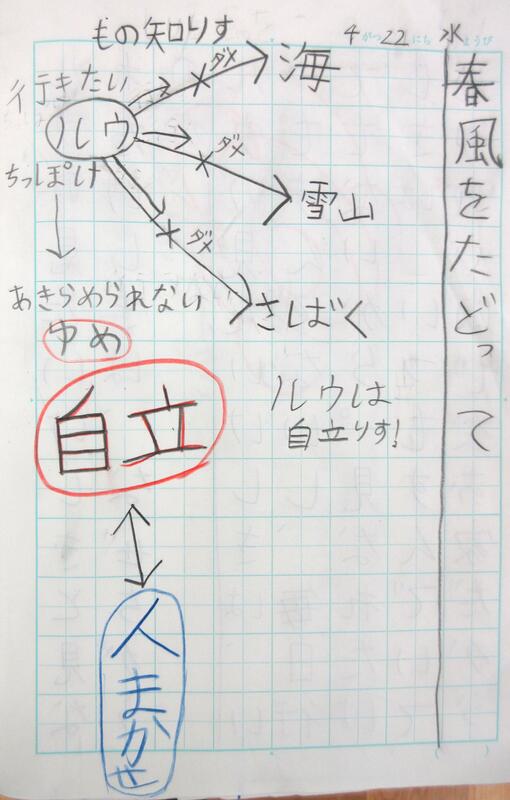 4がつ22にち水ようび
春風をたどって
もの知りす
行きたい
ルウ
ちっぽけ
ダメ
海
ダメ
雪山
ダメ
さばく
あきらめられない
ゆめ
自立
ルウは
自立りす!
人まかせ